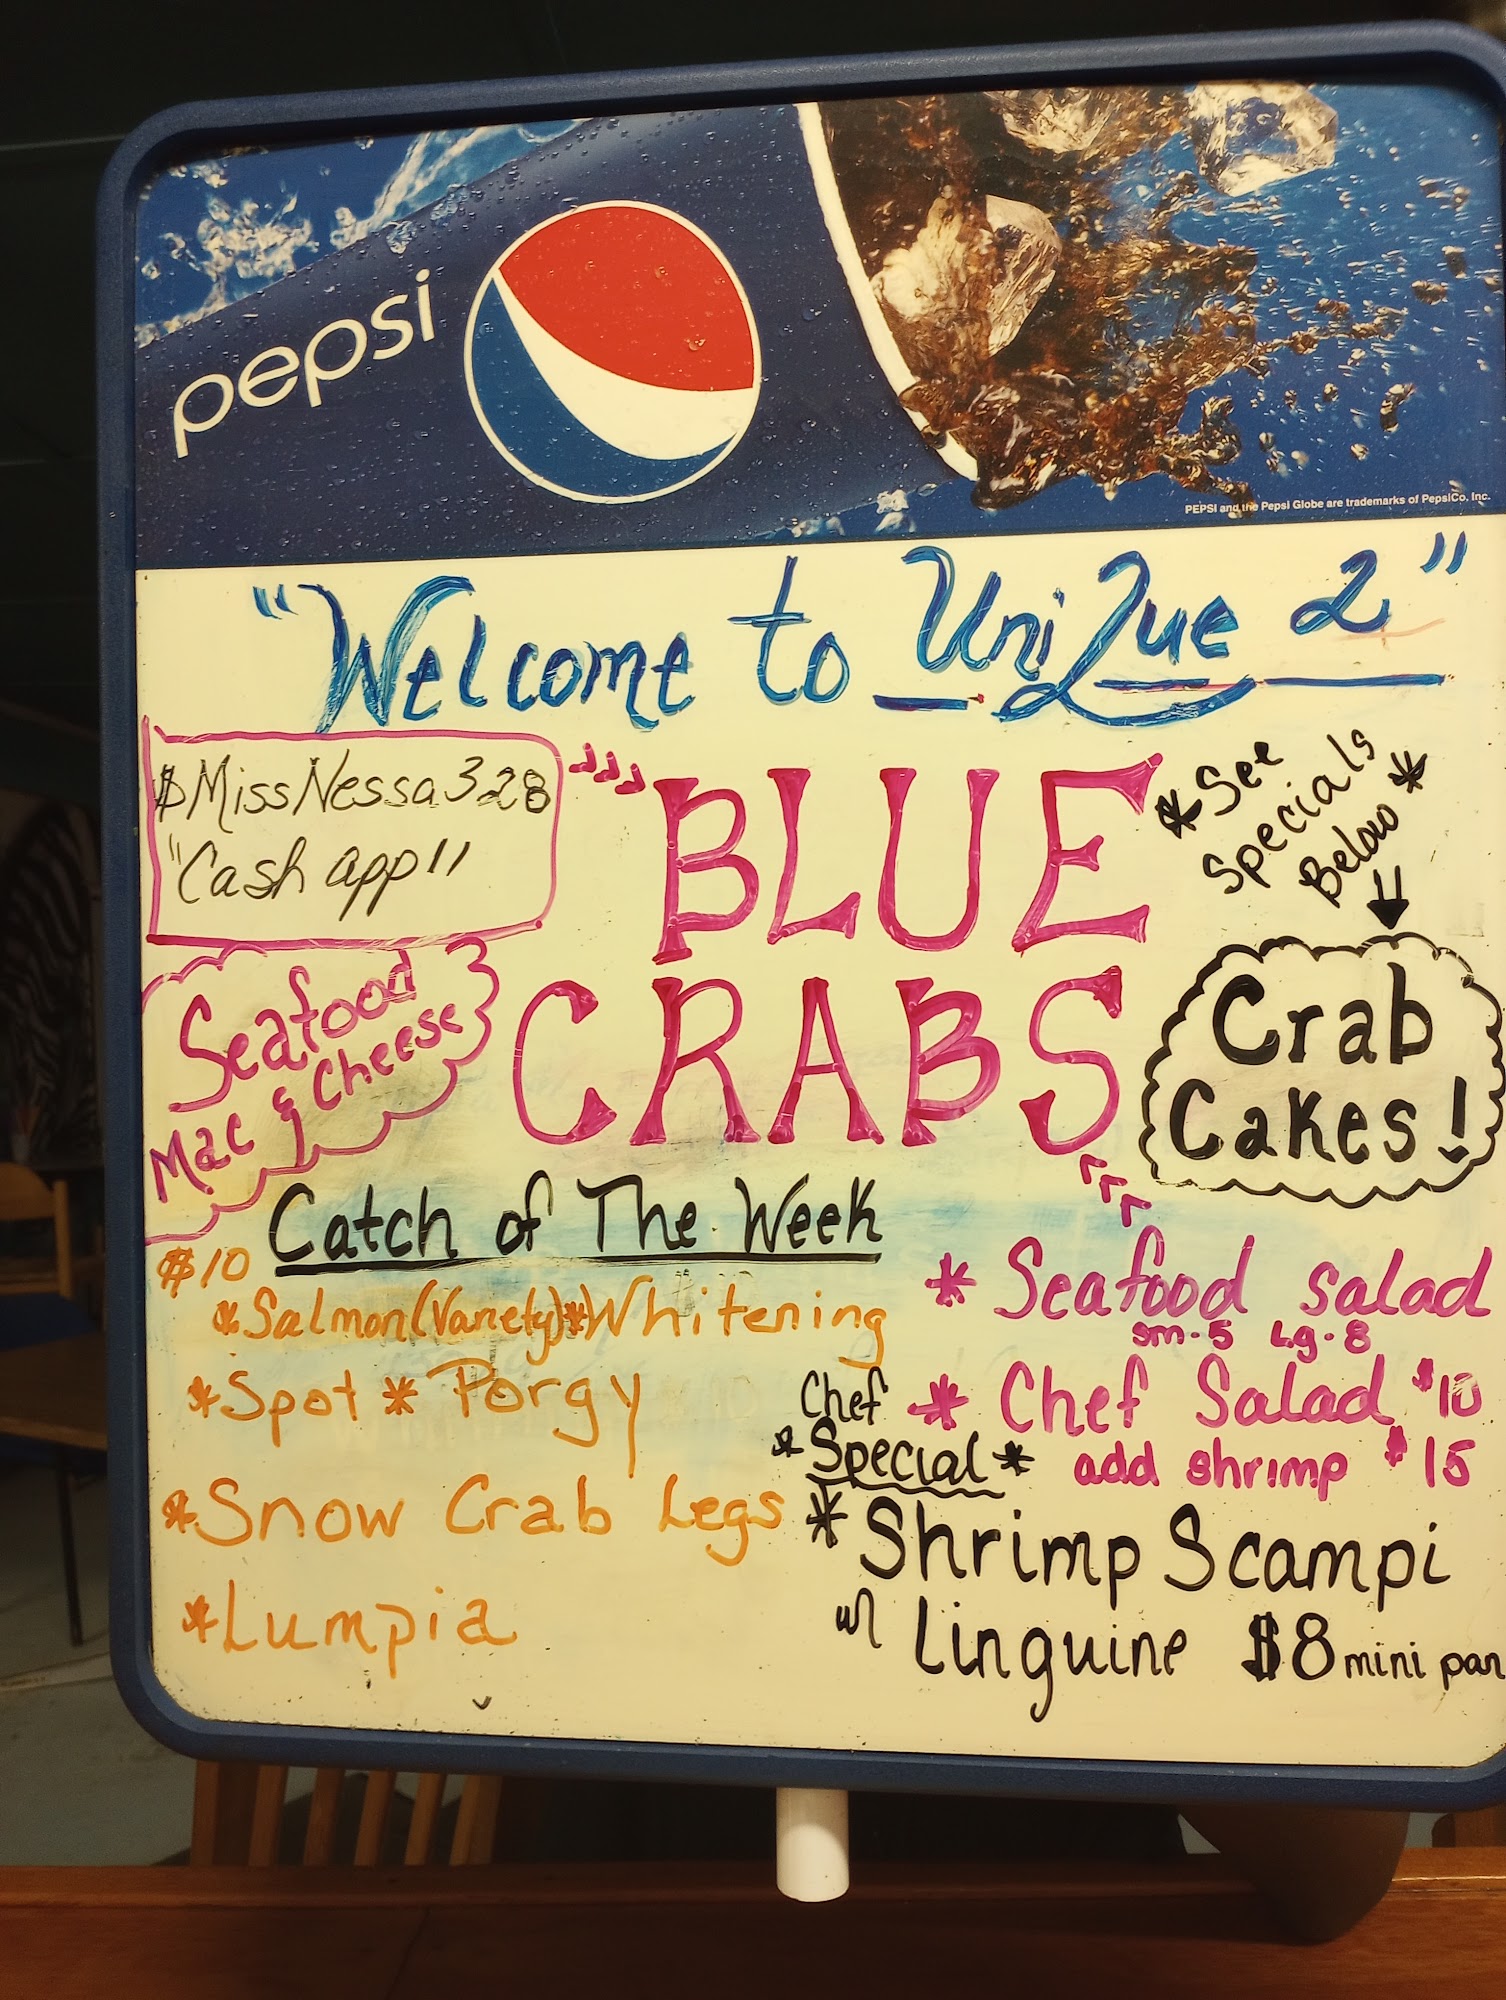 pepsi
PEPSI and the Pepsi Globe are trademarks of PepsiCo, Inc.
"Welcome to UniQue 2"
$MissNessa328
"Cash app"
BLUE
CRABS
*See
Specials
Below*
Crab
Cakes!
Seafood
Mac & Cheese
Catch of The Week
$10
*Salmon(Variety)*Whitening
*Spot *Porgy
*Snow Crab Legs
*Lumpia
* Seafood salad
sm-5 Lg-8
* Chef Salad $10
add shrimp $15
Chef
*Special*
*Shrimp Scampi
w/ Linguine $8 mini pan